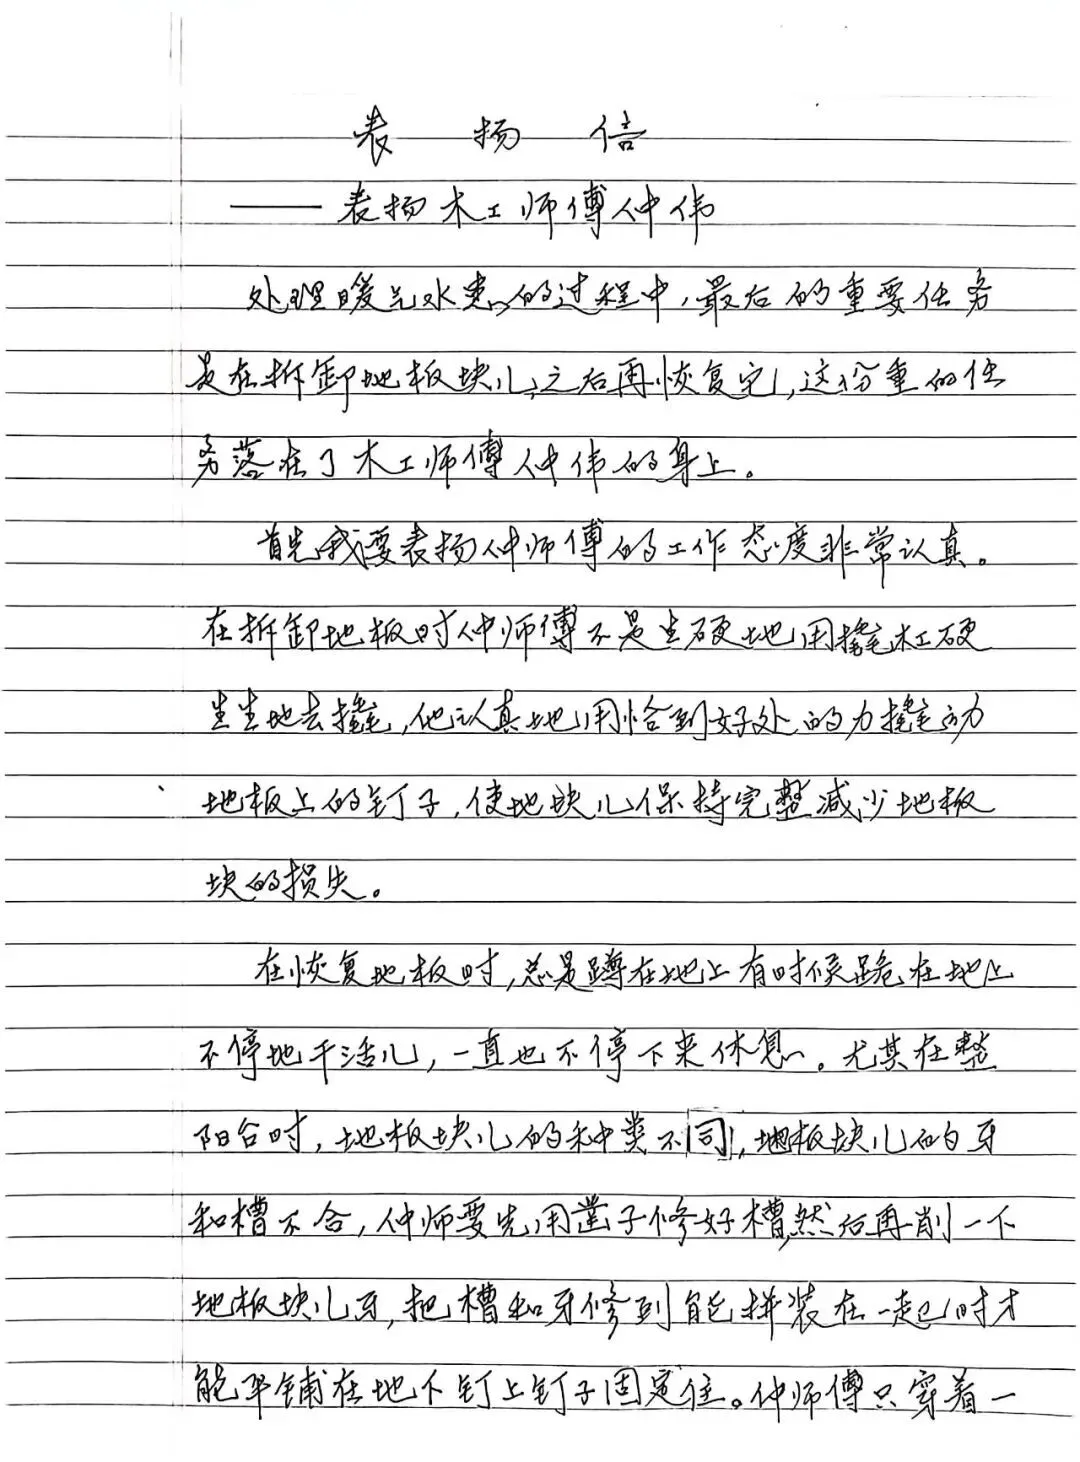 表扬信
——表扬木工师傅仲伟
处理暖气水患的过程中,最后的重要任务
是在拆卸地板块儿之后再恢复它,这份重的任
务落在了木工师傅仲伟的身上。
首先我要表扬仲师傅的工作态度非常认真。
在拆卸地板时仲师傅不是生硬地用撬杠硬
生生地去撬,他认真地用恰到好处的力撬动
地板上的钉子,使地块儿保持完整减少地板
块的损失。
在恢复地板时,总是蹲在地上有时候跪在地上
不停地干活儿,一直也不停下来休息。尤其在整
阳台时,地板块儿的种类不同,地板块儿的牙
和槽不合,仲师要先用凿子修好槽,然后再削一下
地板块儿牙,把槽和牙修到能拼装在一起时才
能平铺在地下钉上钉子固定住。仲师傅只穿着一